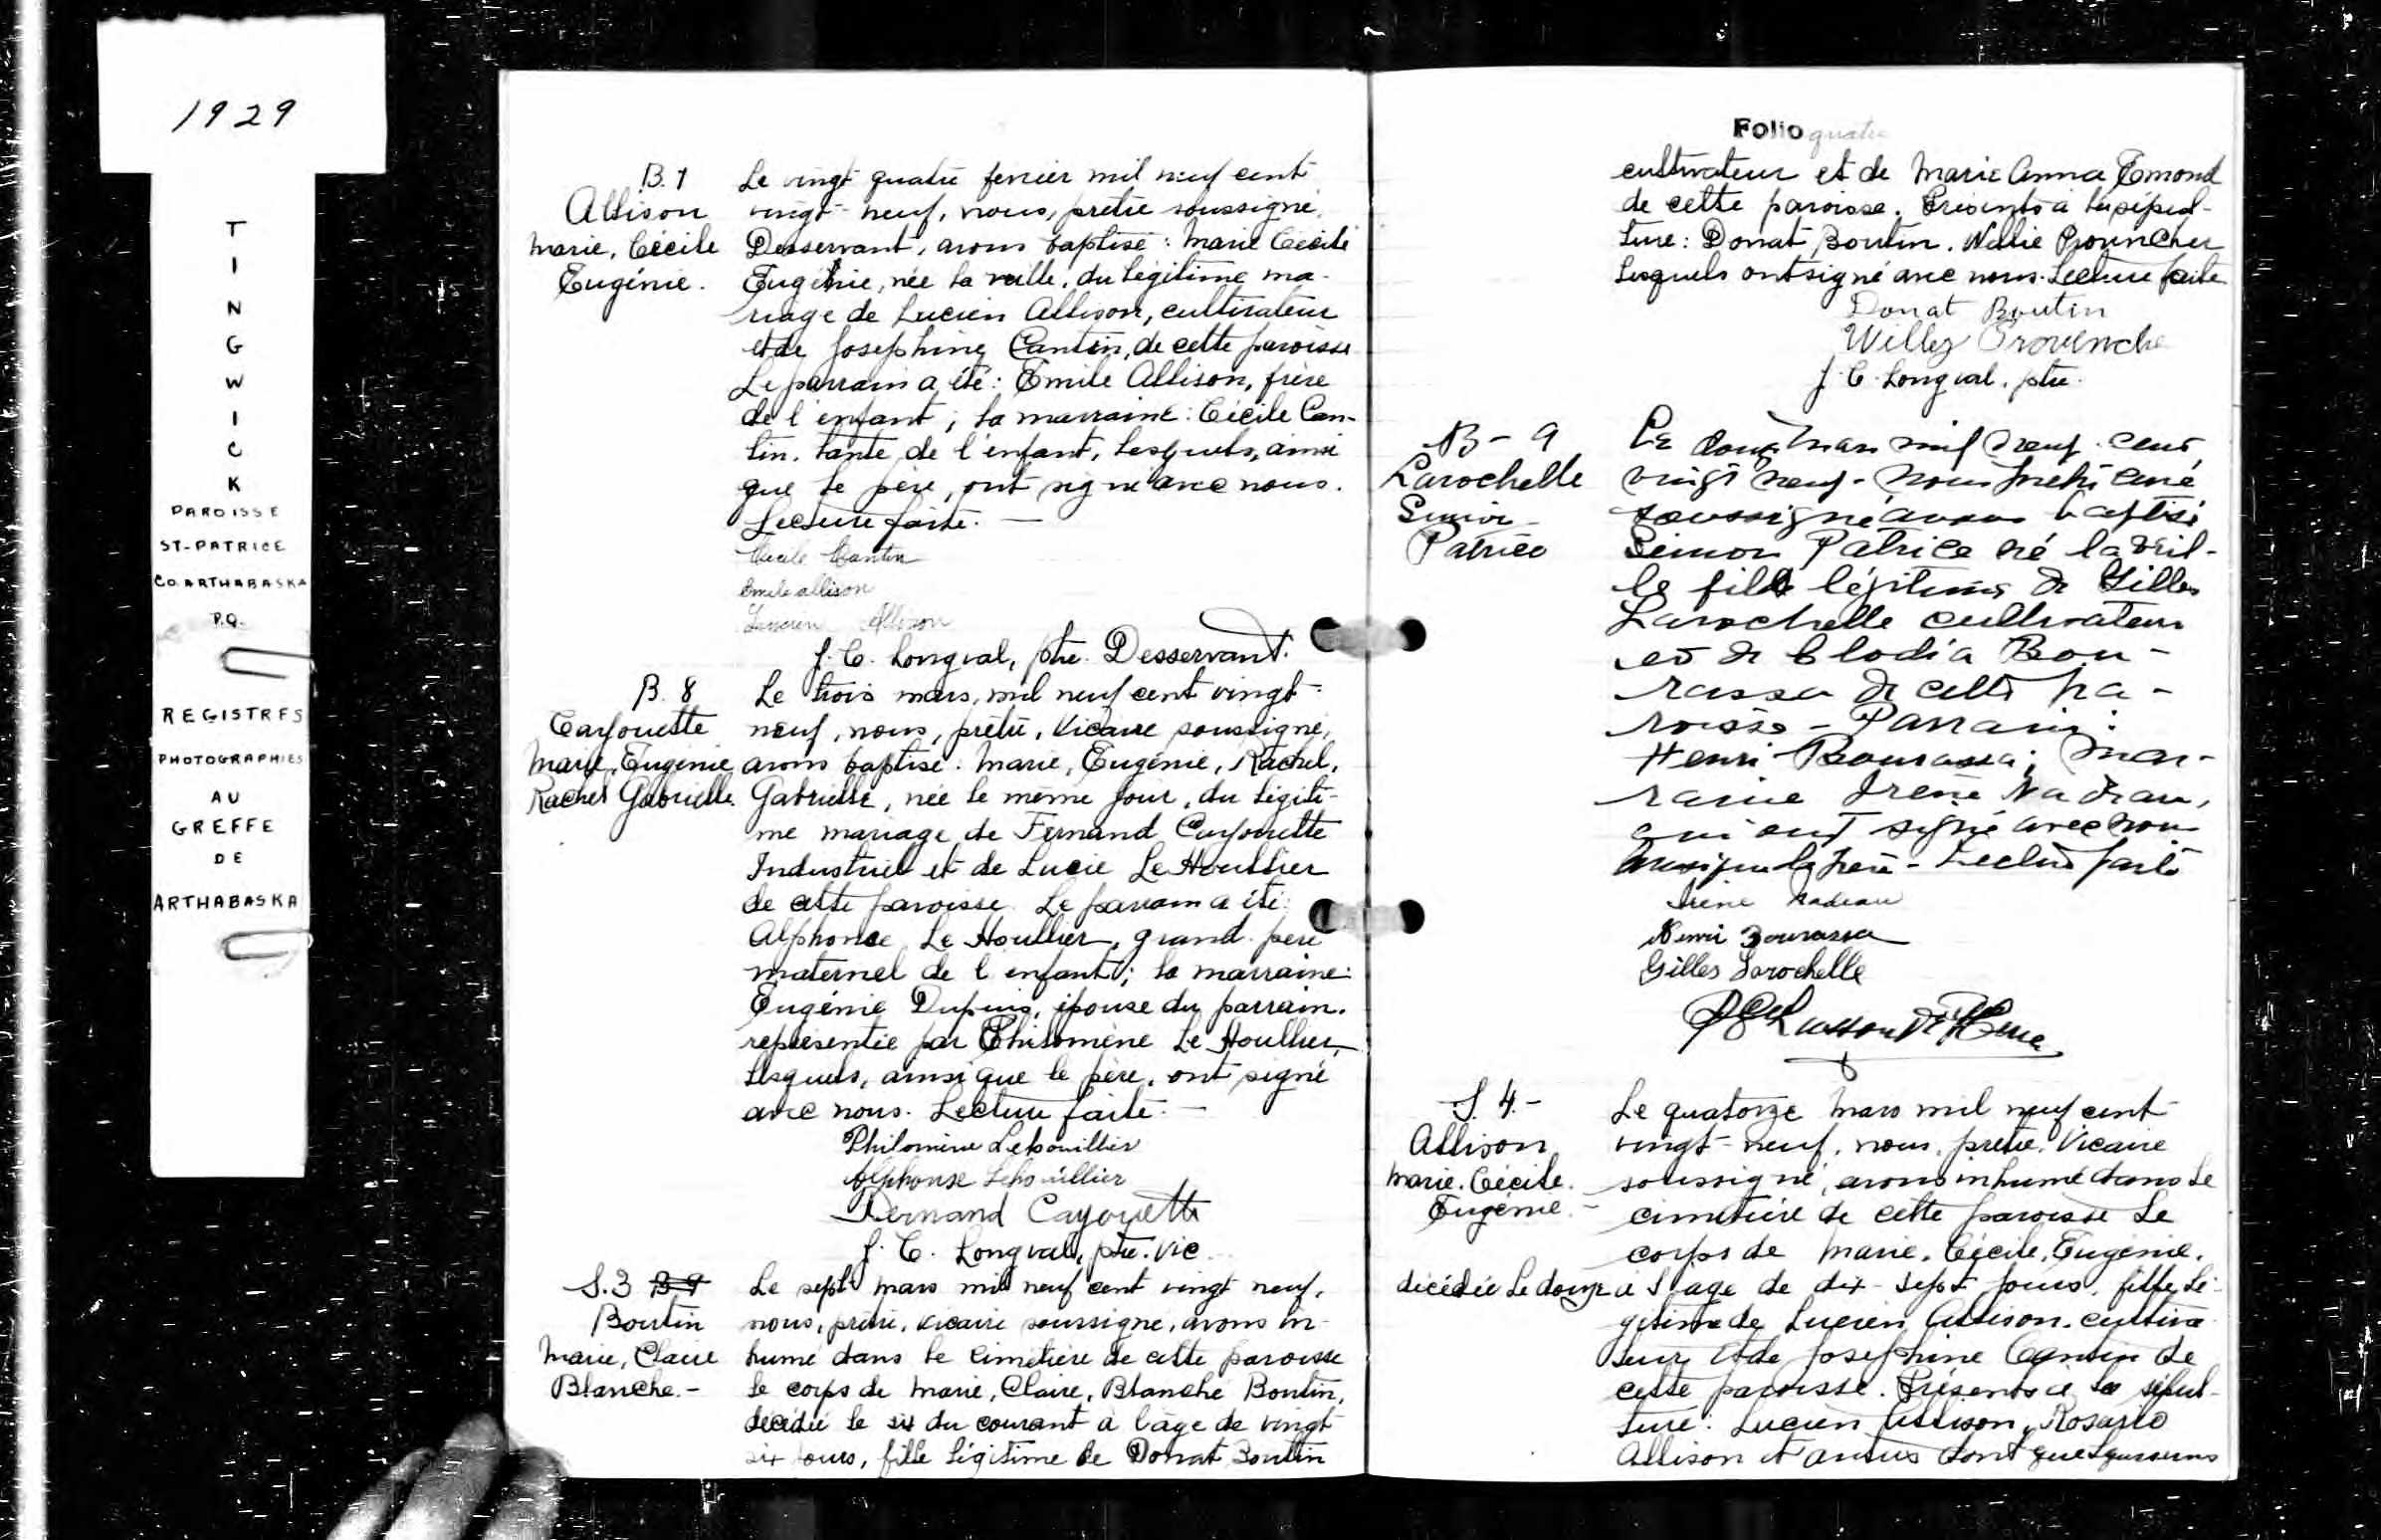 1929
TINGWICK
PAROISSE
ST-PATRICE
CO. ARTHABASKA
P.Q.
REGISTRES
PHOTOGRAPHIES
AU
GREFFE
DE
ARTHABASKA
B. 7
Allison
Marie, Cécile
Eugénie.
Le vingt quatre fevrier mil neuf cent
vingt-neuf, nous, prêtre soussigné,
Desservant, avons baptisé: Marie Cécile
Eugénie, née la veille, du légitime ma-
riage de Lucien Allison, cultivateur
et de Josephine Cantin, de cette paroisse
Le parrain a été: Emile Allison, frère
de l'enfant; la marraine: Cécile Can-
tin, tante de l'enfant, lesquels, ainsi
que le père, ont signé avec nous.
Lecture faite. —
Cécile Cantin
Emile allison
Lucien Allison
J. C. Longval, ptre. Desservant.
B. 8
Cayouette
Marie, Eugénie
Rachel Gabrielle.
Le trois mars, mil neuf cent vingt-
neuf, nous, prêtre, Vicaire soussigné,
avons baptisé: Marie, Eugénie, Rachel,
Gabrielle, née le même jour, du légiti-
me mariage de Fernand Cayouette
Industriel et de Lucie Le Houllier
de cette paroisse. Le parrain a été:
Alphonse Le Houllier, grand-père
maternel de l'enfant; la marraine:
Eugénie Dupuis, épouse du parrain.
représentée par Philomène Le Houllier,
lesquels, ainsi que le père, ont signé
avec nous. Lecture faite. —
Philomène Lehouillier
Alphonse Lehouillier
Fernand Cayouette
J. C. Longval, ptre. Vic
S. 3 B-9
Boutin
Marie, Claire
Blanche. -
Le sept mars mil neuf cent vingt neuf,
nous, prêtre, Vicaire soussigné, avons in-
humé dans le cimetière de cette paroisse
le corps de Marie, Claire, Blanche Boutin,
décédée le six du courant à l'âge de vingt
six jours, fille légitime de Donat Boutin
Folio quatre
cultivateur et de Marie Anna Emond
de cette paroisse. Présents à la sépul-
ture: Donat Boutin, Willie Provencher
lesquels ont signé avec nous. Lecture faite
Donat Boutin
Willey Provencher
J. C. Longval, ptre.
B - 9
Larochelle
Simon
Patrice
Le douze mars mil neuf cent
vingt neuf - nous prêtre curé
soussigné avons baptisé
Simon Patrice né la veil-
le fils légitime de Gilles
Larochelle cultivateur
et de Clodia Bou-
rassa de cette pa-
roisse - Parrain:
Henri Bourassa; mar-
raine Irène Nadeau,
qui ont signé avec nous
ainsi que le père - Lecture faite
Irène Nadeau
Henri Bourassa
Gilles Larochelle
S. 4. -
Allison
Marie. Cécile.
Eugénie. -
Le quatorze mars mil neuf cent
vingt-neuf, nous, prêtre, Vicaire
soussigné, avons inhumé dans le
cimetière de cette paroisse le
corps de Marie, Cécile, Eugénie.
décédée Le douze a l'age de dix-sept jours, fille lé-
gitime de Lucien Allison, cultiva-
teur et de Josephine Cantin de
cette paroisse. Présents a la sépul-
ture: Lucien Allison, Rosario
Allison et autres dont quelques uns